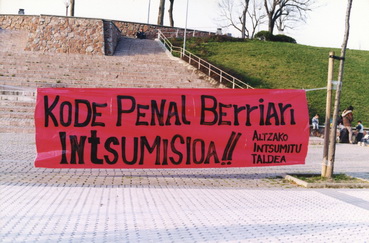 KODE PENAL BERRIARI
INTSUMISIOA!!
ALTZAKO
INTSUMITU
TALDEA